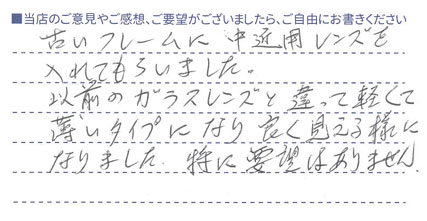 ■当店のご意見やご感想、ご要望がございましたら、ご自由にお書きください
古いフレームに 中近用レンズを
入れてもらいました。
以前のガラスレンズと違って軽くて
薄いタイプになり良く見える様に
なりました. 特に要望はありません.